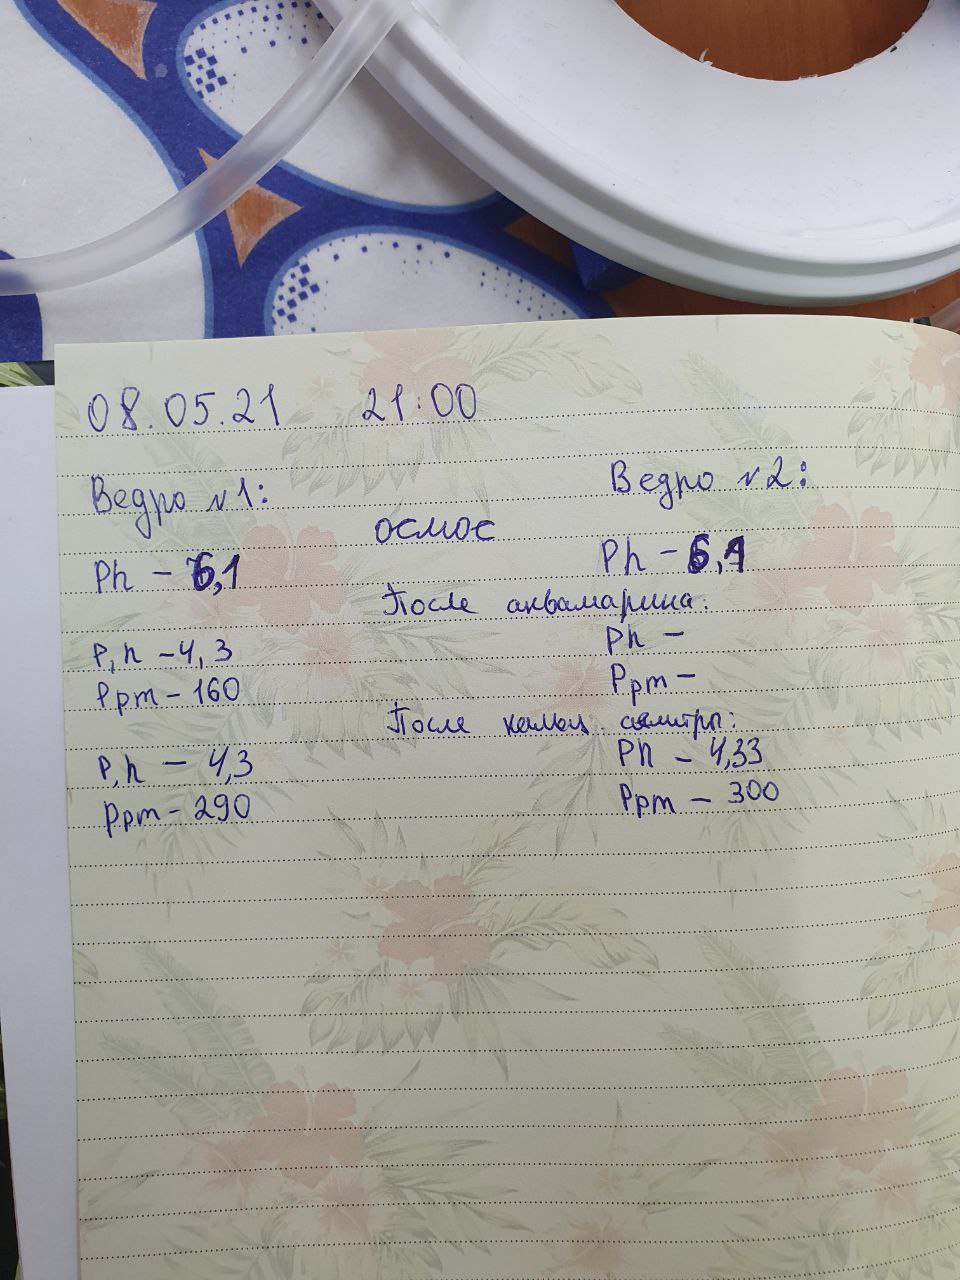 08.05.21 21:00
Ведро №1: Ведро №2:
осмос
Ph - 6,1 Ph - 6,1
После аквамарина:
P,h - 4,3 Ph -
Ppm - 160 Ppm -
После кальц. селитры:
P,h - 4,3 Ph - 4,33
Ppm - 290 Ppm - 300